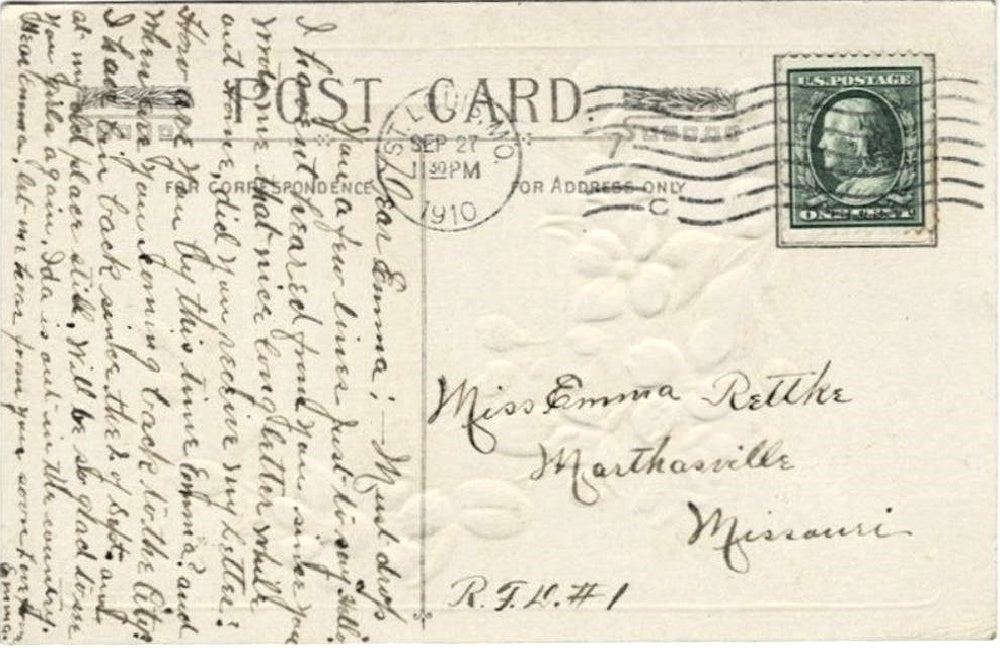 POST CARD.
FOR CORRESPONDENCE
FOR ADDRESS ONLY
ST. LOUIS, MO.
SEP 27
11 30 PM
1910
7
C
U.S. POSTAGE
ONE CENT
Dear Emma; — Must drop
you a few lines just to say Hello
I havent heared from you since you
wrote me that nice long letter while
out Home, did you receive my letter?
How are you by this time Emma? and
When are you coming back to the City?
I have bin back since the of Sept. and
at my old place still. Will be so glad to see
you girls again. Ida is out in the country.
Dear Emma, let me hear from you soon
Miss Emma Rettke
Marthasville
Missouri
R.F.D. #1